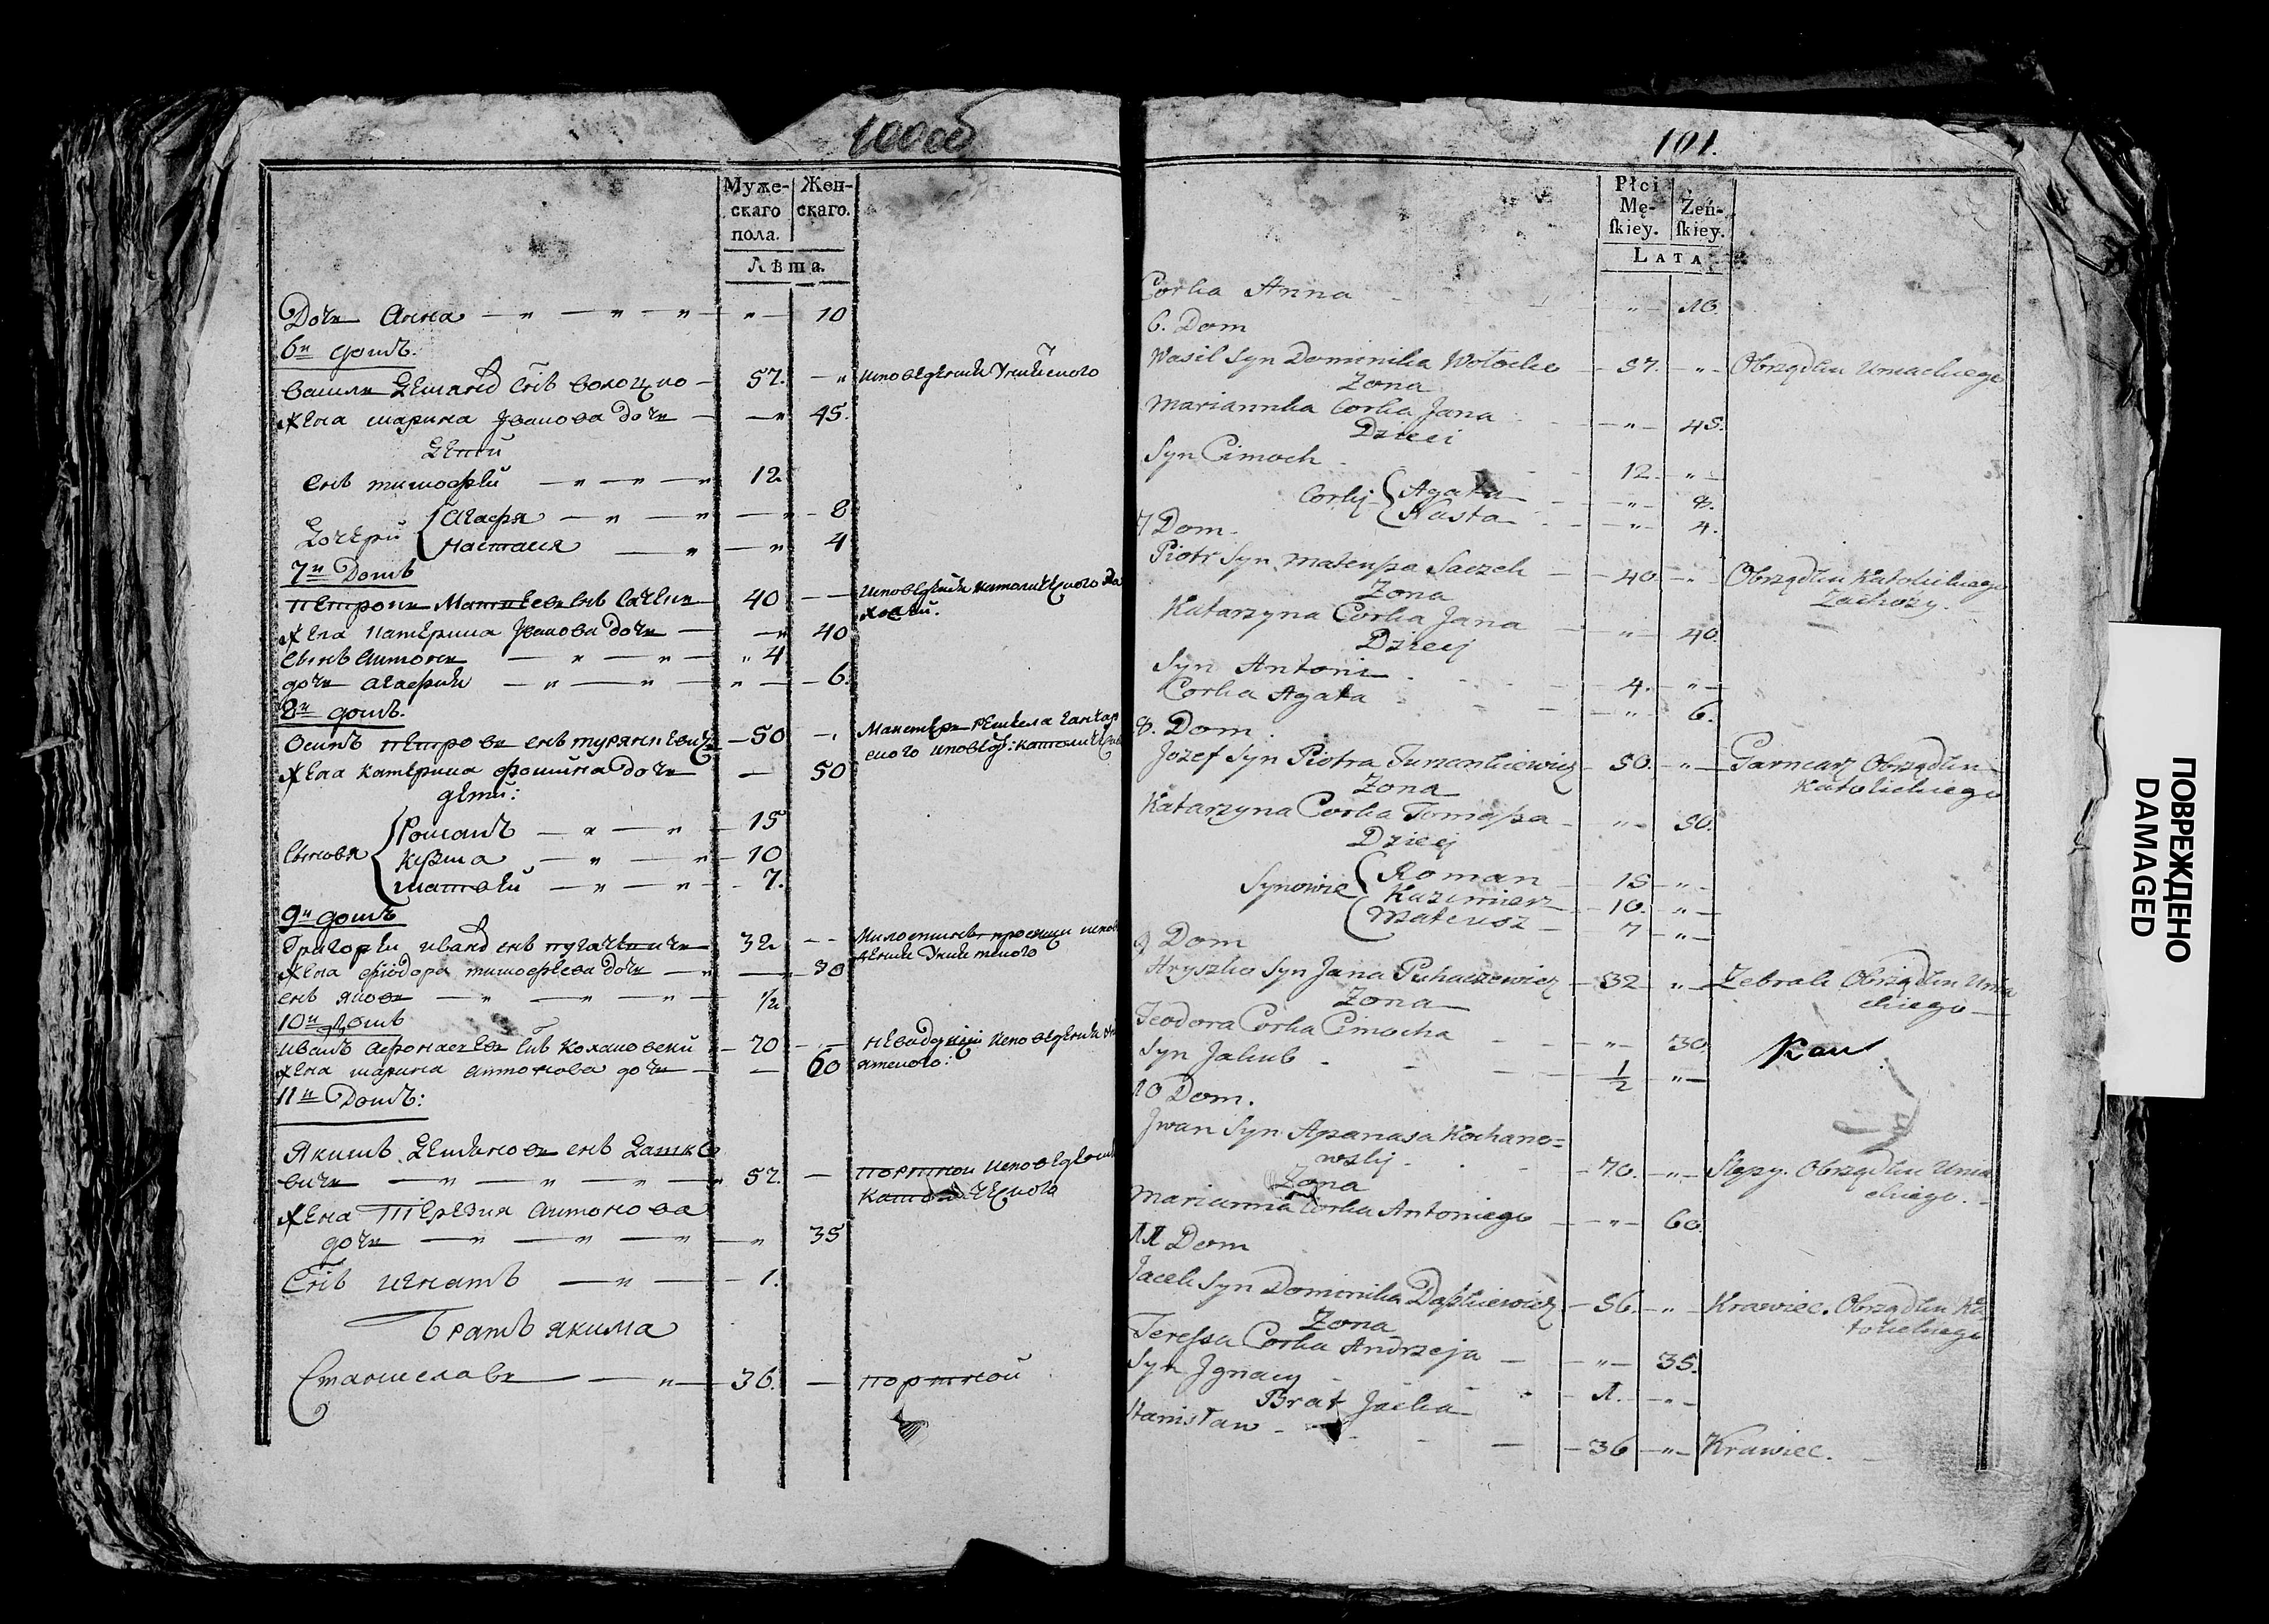 100 об
Муже-
скаго
пола.
Жен-
скаго.
Лѣта.
Дочь Анна — " — " — " — " — 10
6й домъ.
василь Демянов Снъ волоцко — 57. — " исповеденія Униятского
жена марина Іванова дочь — — " 45.
Дети
Снъ тимофей — " — " — " 12
Дочери
Агафья — " — " — " — 8
Настася — " — " 4
7й Домъ
петрони Матвеевъ снъ Сачекъ 40 — исповеденія католического
жена Катерина Іванова дочь — — " 40
сынъ антони — " — " — " 4
дочь агафия — " — " — " — 6.
8й домъ.
Осипъ петровъ снъ турянкевичъ — 50 — " Мастеръ ремесла ганчар
ского исповед: католическ
жена катерина фомина дочь — 50
дети:
Сыновя
Романъ — " — " — 15
Кузма — " — " — 10
матвей — " — " — 7.
9й домъ
Григорей иванов снъ пугачевичъ 32 — — Милостыне просящи испов
едения Униятского
жена фиодора тимофеева дочь — " — 30
снъ яковъ — " — " — " — 1/2
10й Домъ
иванъ афонасевъ Снъ Кохановски — 70 — — невидущи исповедения Уни
ятского:
жена марина антонова дочь — — 60
11й Домъ:
Якимъ Демьяновъ снъ Дашке
вичъ — " — " — " — " 52. — портной исповедения
католического
жена Терезия антонова
дочь — " — " — " — " 35
Снъ игнатъ — " — 1.
Братъ якима
Станиславъ — — " — 36. — портной
101.
Płci
Mę-
skiey.
Żeń-
skiey.
LATA
Corka Anna " — 10.
6. Dom
Wasil Syn Dominika Wołocko — 57. — " — Obrządku Uniackiego
Zona
Mariannka Corka Jana — " — 45.
Dzieci
Syn Cimoch — 12. — " —
Corky
Agata — " — 8.
Nasta — " — 4.
7 Dom.
Piotr Syn Mateusza Saczek — 40. — " — Obrządku Katolickiego
Zona
Katarzyna Corka Jana — " — 40.
Dziecy
Syn Antoni — 4. — " —
Corka Agata — " — 6.
8. Dom
Jozef Syn Piotra Turankiewicz — 50. — " — Garncarz Obrządku
Katolickiego
Zona
Katarzyna Corka Tomasza — " — 50.
Dziecy
Synowie
Roman — 15 — " —
Kazimierz — 10. — " —
Mateusz — 7 — " —
9 Dom
Hryszko Syn Jana Puhaczewicz — 32 — " — Żebrak Obrządku Unia
ckiego —
Zona
Teodora Corka Cimocha — " — 30.
Syn Jakub — 1/2 — " —
10 Dom.
Jwan Syn Apanasa Kochano=
wsky — 70. — " — Slepy. Obrządku Unia
ckiego. —
Zona
Marianna Corka Antoniego — " — 60.
11 Dom
Jacek Syn Dominika Daszkiewicz — 56. — " — Krawiec. Obrządku Ka
tolickiego
Zona
Teressa Corka Andrzeja — " — 35.
Syn Jgnacy — 1. — " —
Brat Jacka
Stanisław — 36 — " — Krawiec.
ПОВРЕЖДЕНО
DAMAGED